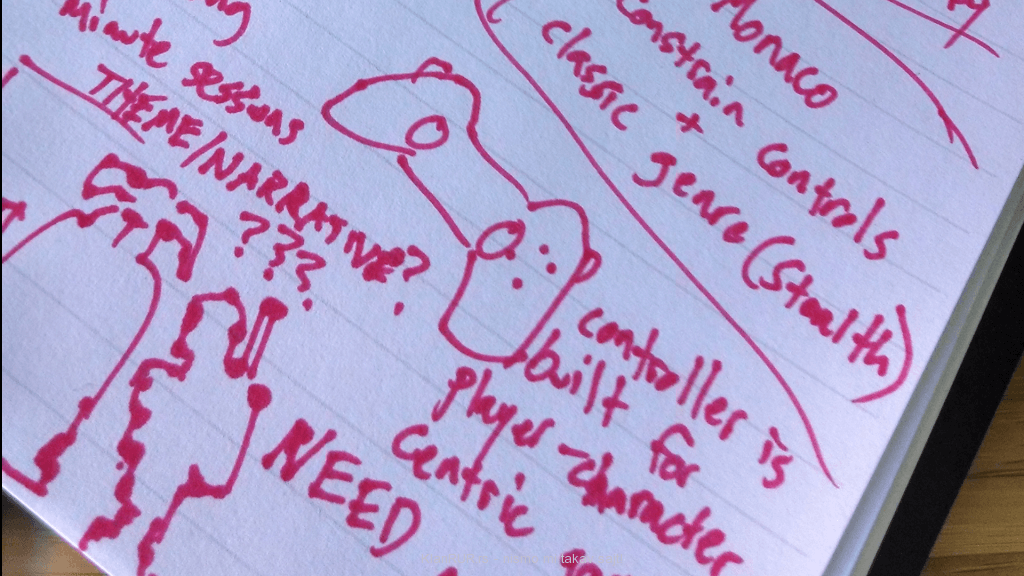 minute sessons
THEME/NARRATIVE?
???
Monaco
Constrain controls
+
classic genre (stealth)
controller is
built for
player-character
centric
NEED